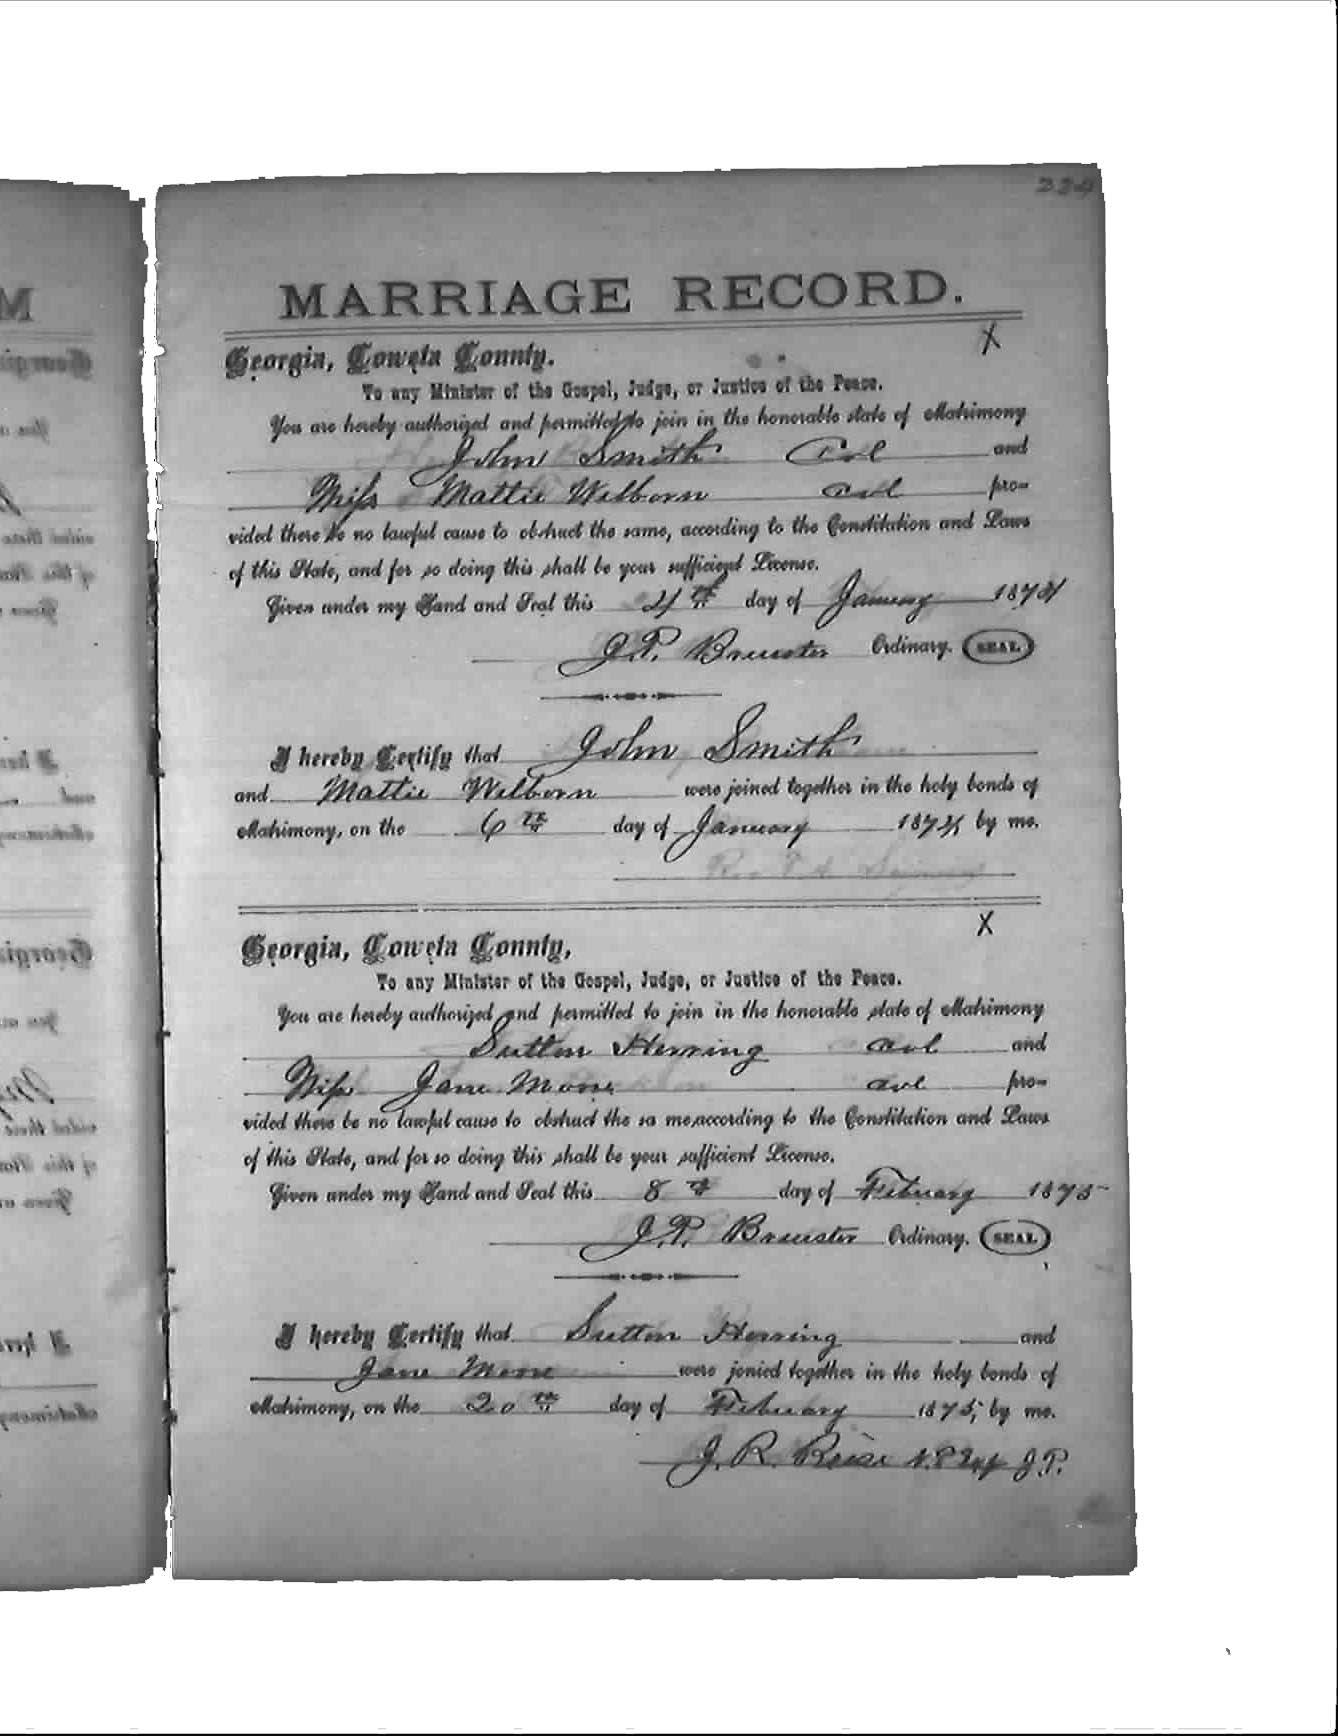 334
MARRIAGE RECORD.
X
Georgia, Coweta County.
To any Minister of the Gospel, Judge, or Justice of the Peace.
You are hereby authorized and permitted to join in the honorable state of Matrimony
John Smith Col and
Miss Mattie Welborn col pro-
vided there be no lawful cause to obstruct the same, according to the Constitution and Laws
of this State, and for so doing this shall be your sufficient License.
Given under my Hand and Seal this 4th day of January 1874
J.P. Brewster Ordinary. SEAL
I hereby Certify that John Smith
and Mattie Welborn were joined together in the holy bonds of
Matrimony, on the 6th day of January 1874 by me.
Rev
X
Georgia, Coweta County,
To any Minister of the Gospel, Judge, or Justice of the Peace.
You are hereby authorized and permitted to join in the honorable state of Matrimony
Sutton Herring col and
Miss Jane Moore col pro-
vided there be no lawful cause to obstruct the sa me,according to the Constitution and Laws
of this State, and for so doing this shall be your sufficient License.
Given under my Hand and Seal this 8th day of Febuary 1875
J.P. Brewster Ordinary. SEAL
I hereby Certify that Sutton Herring and
Jane Moore were jonied together in the holy bonds of
Matrimony, on the 20th day of Febuary 1875, by me.
J. R. Reese N.P. J.P.